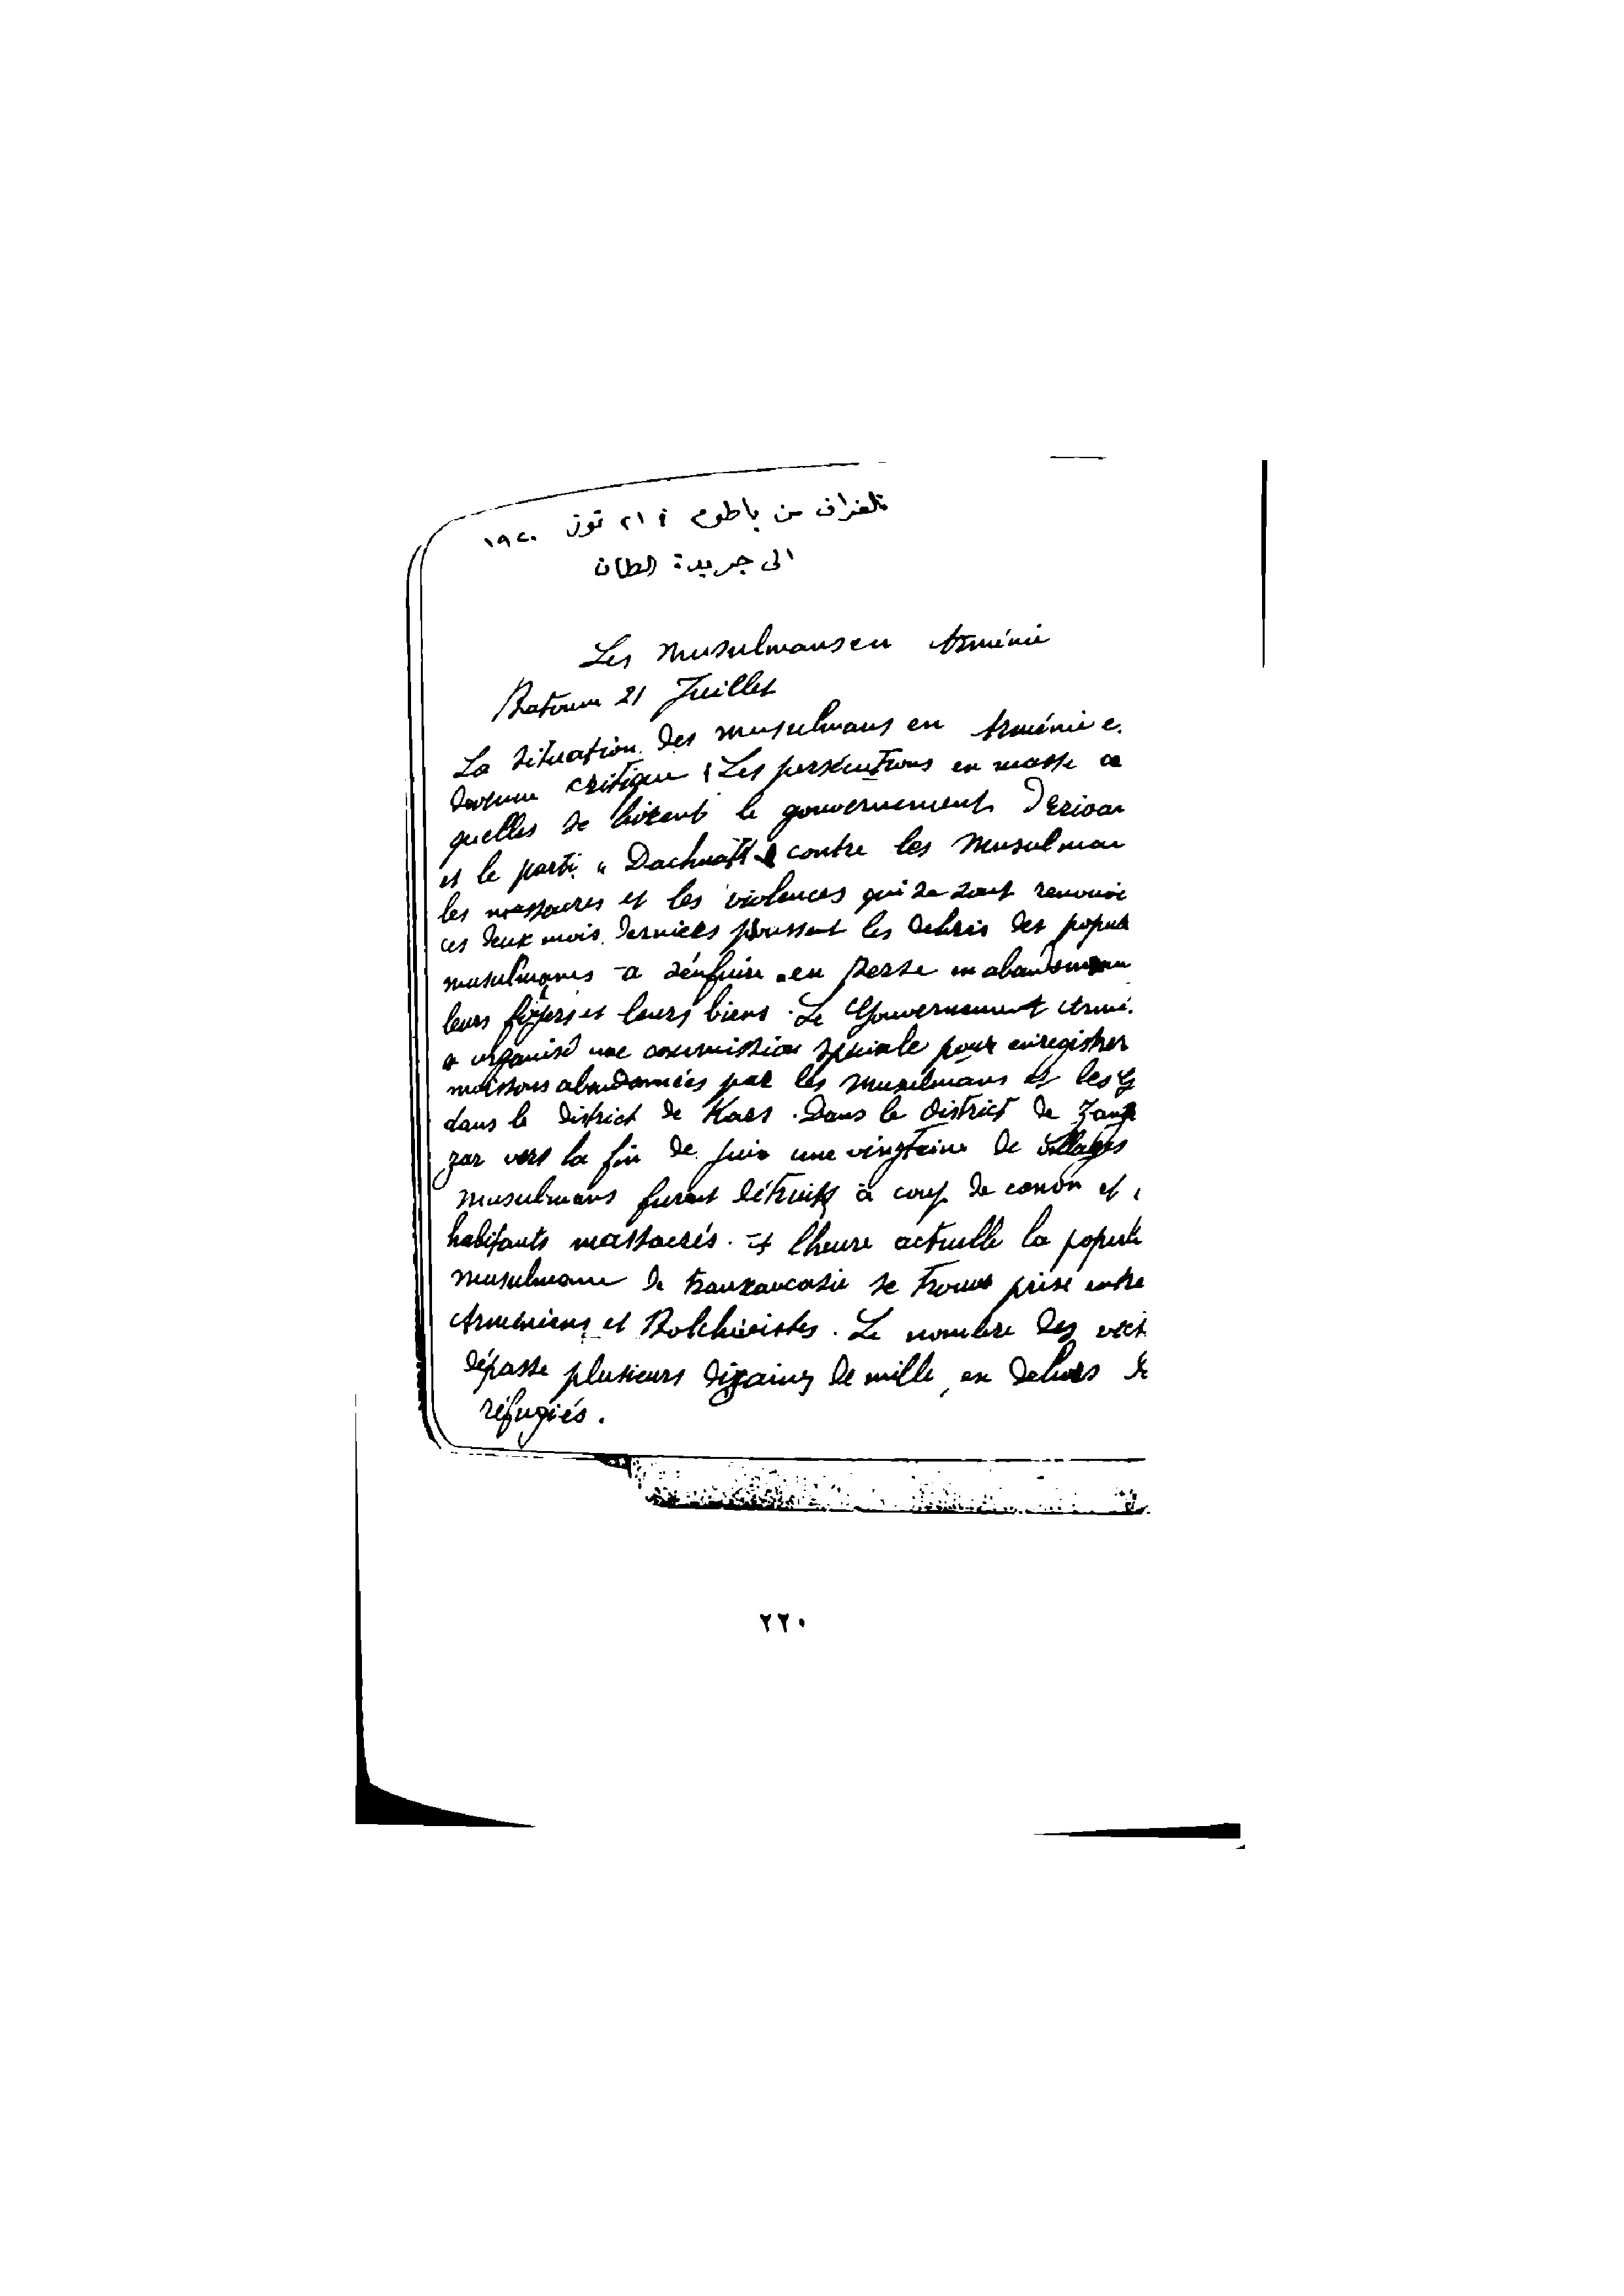 تلغراف من باطوم في ٢١ تموز ١٩٢٠
الى جريدة الطان
Les Musulmans en Arménie
Batoum 21 Juillet
La situation des musulmans en Arménie e
devenue critique. Les persécutions en masse
quelles se livrent le gouvernement d'Erivan
et le parti "Dachnakt" contre les Musulman
les massacres et les violences qui se sont renouvé
ces deux mois derniers poussent les debris des popul
musulmanes a s'enfuire en Perse en abandonnan
leurs foyers et leurs biens. Le Gouvernement Armé
a organisé une commission spéciale pour enregistrer
maisons abandonnées par les musulmans et les
dans le district de Kars. Dans le district de Zang
zar vers la fin de juin une vingtaine de villages
musulmans furent détruits à coup de canon et
habitants massacrés. A l'heure actuelle la popula
musulmane de transcaucasie se trouve prise entre
Arméniens et Bolchévistes. Le nombre des vict
dépasse plusieurs dizaines de mille, en dehors de
réfugiés.
٢٢٠